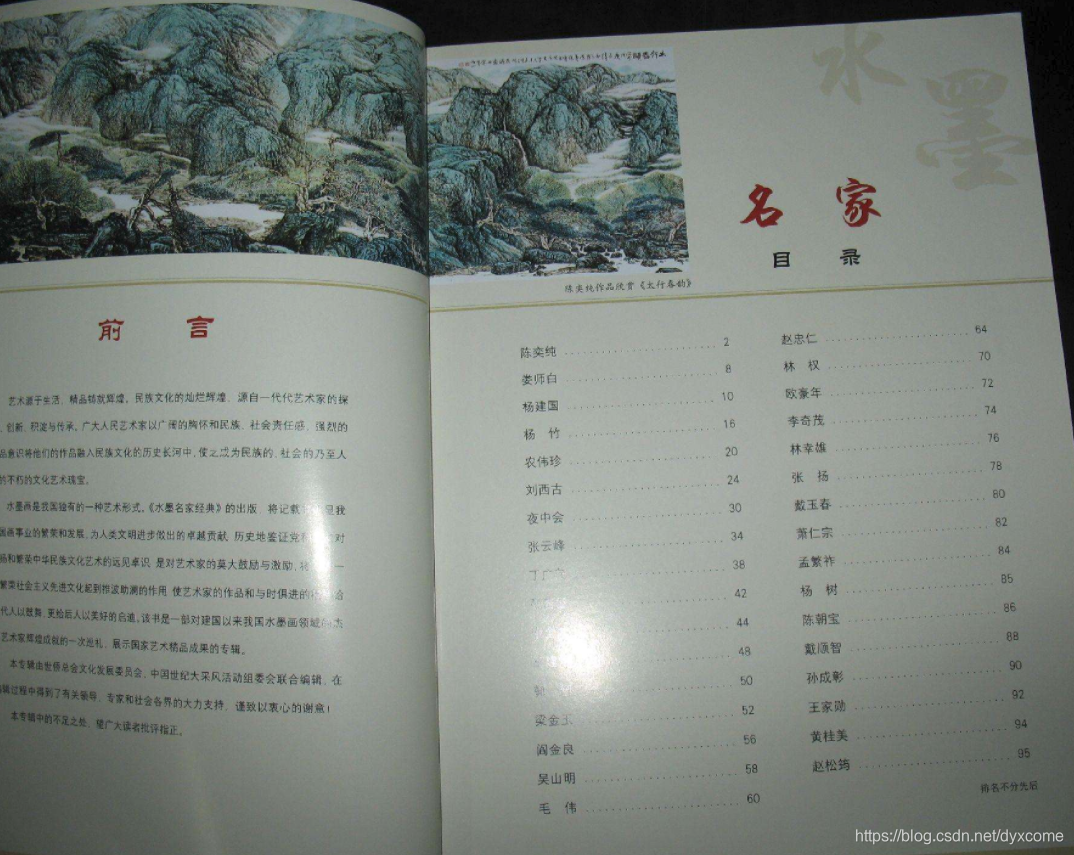 前 言
艺术源于生活，精品铸就辉煌。民族文化的灿烂辉煌，源自一代代艺术家的探
、创新、积淀与传承。广大人民艺术家以广阔的胸怀和民族、社会责任感，强烈的
品意识将他们的作品融入民族文化的历史长河中，使之成为民族的、社会的乃至人
的不朽的文化艺术瑰宝。
水墨画是我国独有的一种艺术形式。《水墨名家经典》的出版，将记载
国画事业的繁荣和发展，为人类文明进步做出的卓越贡献，历史地鉴证党 对
扬和繁荣中华民族文化艺术的远见卓识，是对艺术家的莫大鼓励与激励，
繁荣社会主义先进文化起到推波助澜的作用，使艺术家的作品和与时俱进的
代人以鼓舞，更给后人以美好的启迪。该书是一部对建国以来我国水墨画领域
艺术家辉煌成就的一次巡礼，展示国家艺术精品成果的专辑。
本专辑由世侨总会文化发展委员会、中国世纪大采风活动组委会联合编辑，在
编辑过程中得到了有关领导、专家和社会各界的大力支持，谨致以衷心的谢意！
本专辑中的不足之处，望广大读者批评指正。
水墨
名 家
目 录
陈奕纯作品欣赏《太行春韵》
陈奕纯 2
娄师白 8
杨建国 10
杨 竹 16
农伟珍 20
刘西古 24
夜中会 30
张云峰 34
38
42
44
48
50
梁金玉 52
阎金良 56
吴山明 58
毛 伟 60
赵忠仁 64
林 权 70
欧豪年 72
李奇茂 74
林幸雄 76
张 扬 78
戴玉春 80
萧仁宗 82
孟繁祚 84
杨 树 85
陈朝宝 86
戴顺智 88
孙成彰 90
王家勋 92
黄桂美 94
赵松筠 95
排名不分先后
https://blog.csdn.net/dyxcome